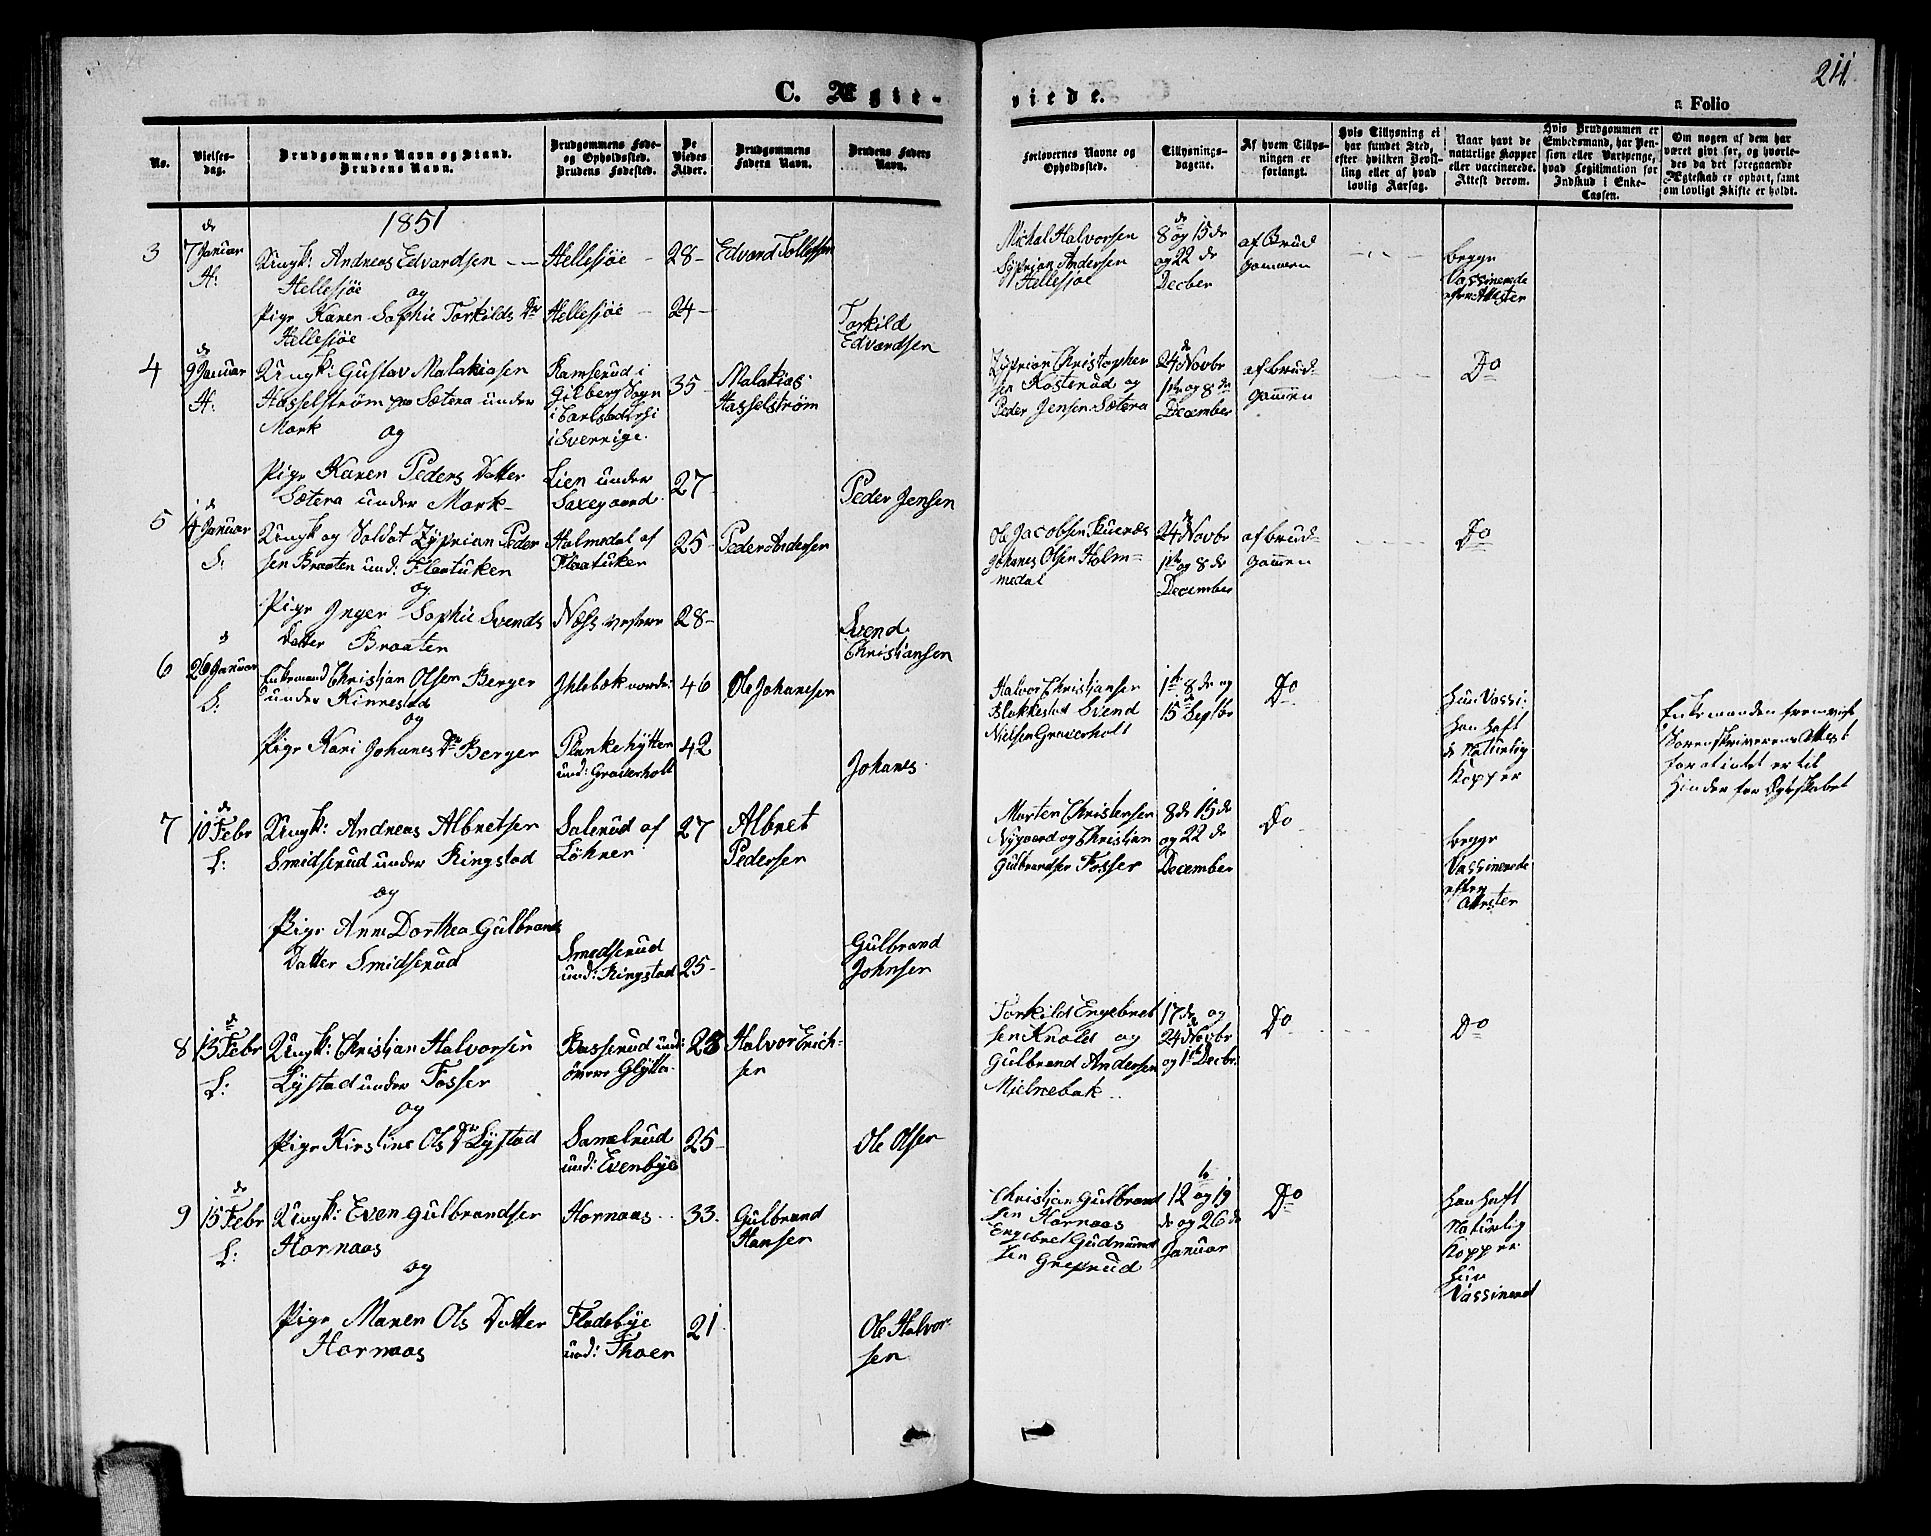 C. Ægte-
viede.
211
a Folio
No.
Vielses-
dag.
Brudgommens Navn og Stand.
Brudens Navn.
Brudgommens Føde-
og Opholdssted.
Brudens Fødested.
De
Viedes
Alder.
Brudgommens
Faders Navn.
Brudens Faders
Navn.
Forlovernes Navne og
Opholdssted.
Tillysnings-
dagene.
Af hvem Tillys-
ningen er
forlangt.
Hvis Tillysning ei
har fundet Sted,
efter hvilken Bevil-
ling eller af hvad
lovlig Aarsag.
Naar havt de
naturlige Kopper
eller vaccinerede.
Attest derom.
Hvis Brudgommen er
Embedsmand, har Pen-
sion eller Vartpenge,
hvad Legitimation for
Indskud i Enke-
Cassen.
Om nogen af dem har
været givt før, og hvorle-
des da det foregaaende
Ægteskab er ophørt, samt
om lovligt Skifte er holdt.
1851
3
7 de Januar
H:
Ungk: Andreas Edvardsen
Hellesjøe
og
Pige Karen Sophie Torkilds Dr
Hellesjøe
Hellesjøe
Hellesjøe
28
24
Edvard Tollefsen
Torkild
Edvardsen
Michal Halvorsen
Syprian Andersen
Hellesjøe
8 de og 15 de
og 22 de
Decber
af Brud
gommen
begge
Vassinerede
efter Attester
4
9 de Januar
H:
Ungk: Gustav Malakiasen
Hasselstrøm paa Sætera under
Mork
og
Pige Karen Peders Datter
Sætera under Mork
Ramserud i
Gilberg Sogn
i Carlstad
i Sverrige.
Lien under
Saxegaard
35
27
Malakias
Hasselstrøm
Peder Jensen
Zyprian Christopher
sen Kosterud og
Peder Jensen Sætera
24 de Novbr
1ste og 8 de
December
af Brud-
gommen
Do
5
14 de Januar
S:
Ungk og Soldat Zyprian Peder
sen Braaten und: Flaatuken
og
Pige Inger Sophie Svends
Datter Braaten
Halmedal af
Flaatuker
Næss vestere
25
28
Peder Andersen
Svend
Christiansen
Ole Jacobsen
Johanes Olsen Holm-
medal
24 de Novbr
1ste og 8 de
December
af Brud-
gommen
Do
6
26 de Januar
S:
Enkemand Christian Olsen Berger
under Kinnestad
og
Pige Kari Johanes Dr Berger
Ihlebæk nordre
Plankehytten
und: Graverholt
46
42
Ole Johansen
Johanes
Halvor Christiansen
Blakkestad Svend
Nielsen Graverholt
1ste 8 de og
15 de Septbr
Do
Hun Vassi:
Han haft
de Naturlig
Kopper
Enkemanden fremviste
Sorenskriverens Attest
for at intet er til
Hinder for Egteskabet
7
10 de Febr
L:
Ungk: Andreas Albretsen
Smidserud under Ringstad
og
Pige Anne Dorthea Gulbrands
Datter Smidserud
Salerud af
Løkner
Smedserud
und: Ringstad
27
25
Albret
Pedersen
Gulbrand
Johnsen
Morten Christensen
Nygaard og Christian
Gulbrandsen Fosser
8 de 15 de
og 22 de
December
Do
begge
Vassinerede
efter
Attester
8
13 de Febr
L:
Ungk: Christian Halvorsen
Lystad under Fosser
og
Pige Kirstine Ols Dr Lystad
Basserud und:
øvere Glytta
Samelrud
und: Evenbye
28
25
Halvor Erich-
sen
Ole Olsen
Torkild Engebret
sen Knold og
Gulbrand Andersen
Mielnebak
17 de og
24 de Novbr
og 1ste Decbr:
Do
Do
9
15 de Febr
L:
Ungk: Even Gulbrandsen
Hornaas
og
Pige Maren Ols Datter
Hornaas
Hornaas
Fladebye
und: Thoen
33
21
Gulbrand
Hansen
Ole Halvor-
sen
Christian Gulbrand
sen Hornaas
Engebret Gudmund
sen Greprud
12 te og 19
de og 26 de
Januar
Do
Han haft
Naturlig
Kopper
Hun
Vassinered